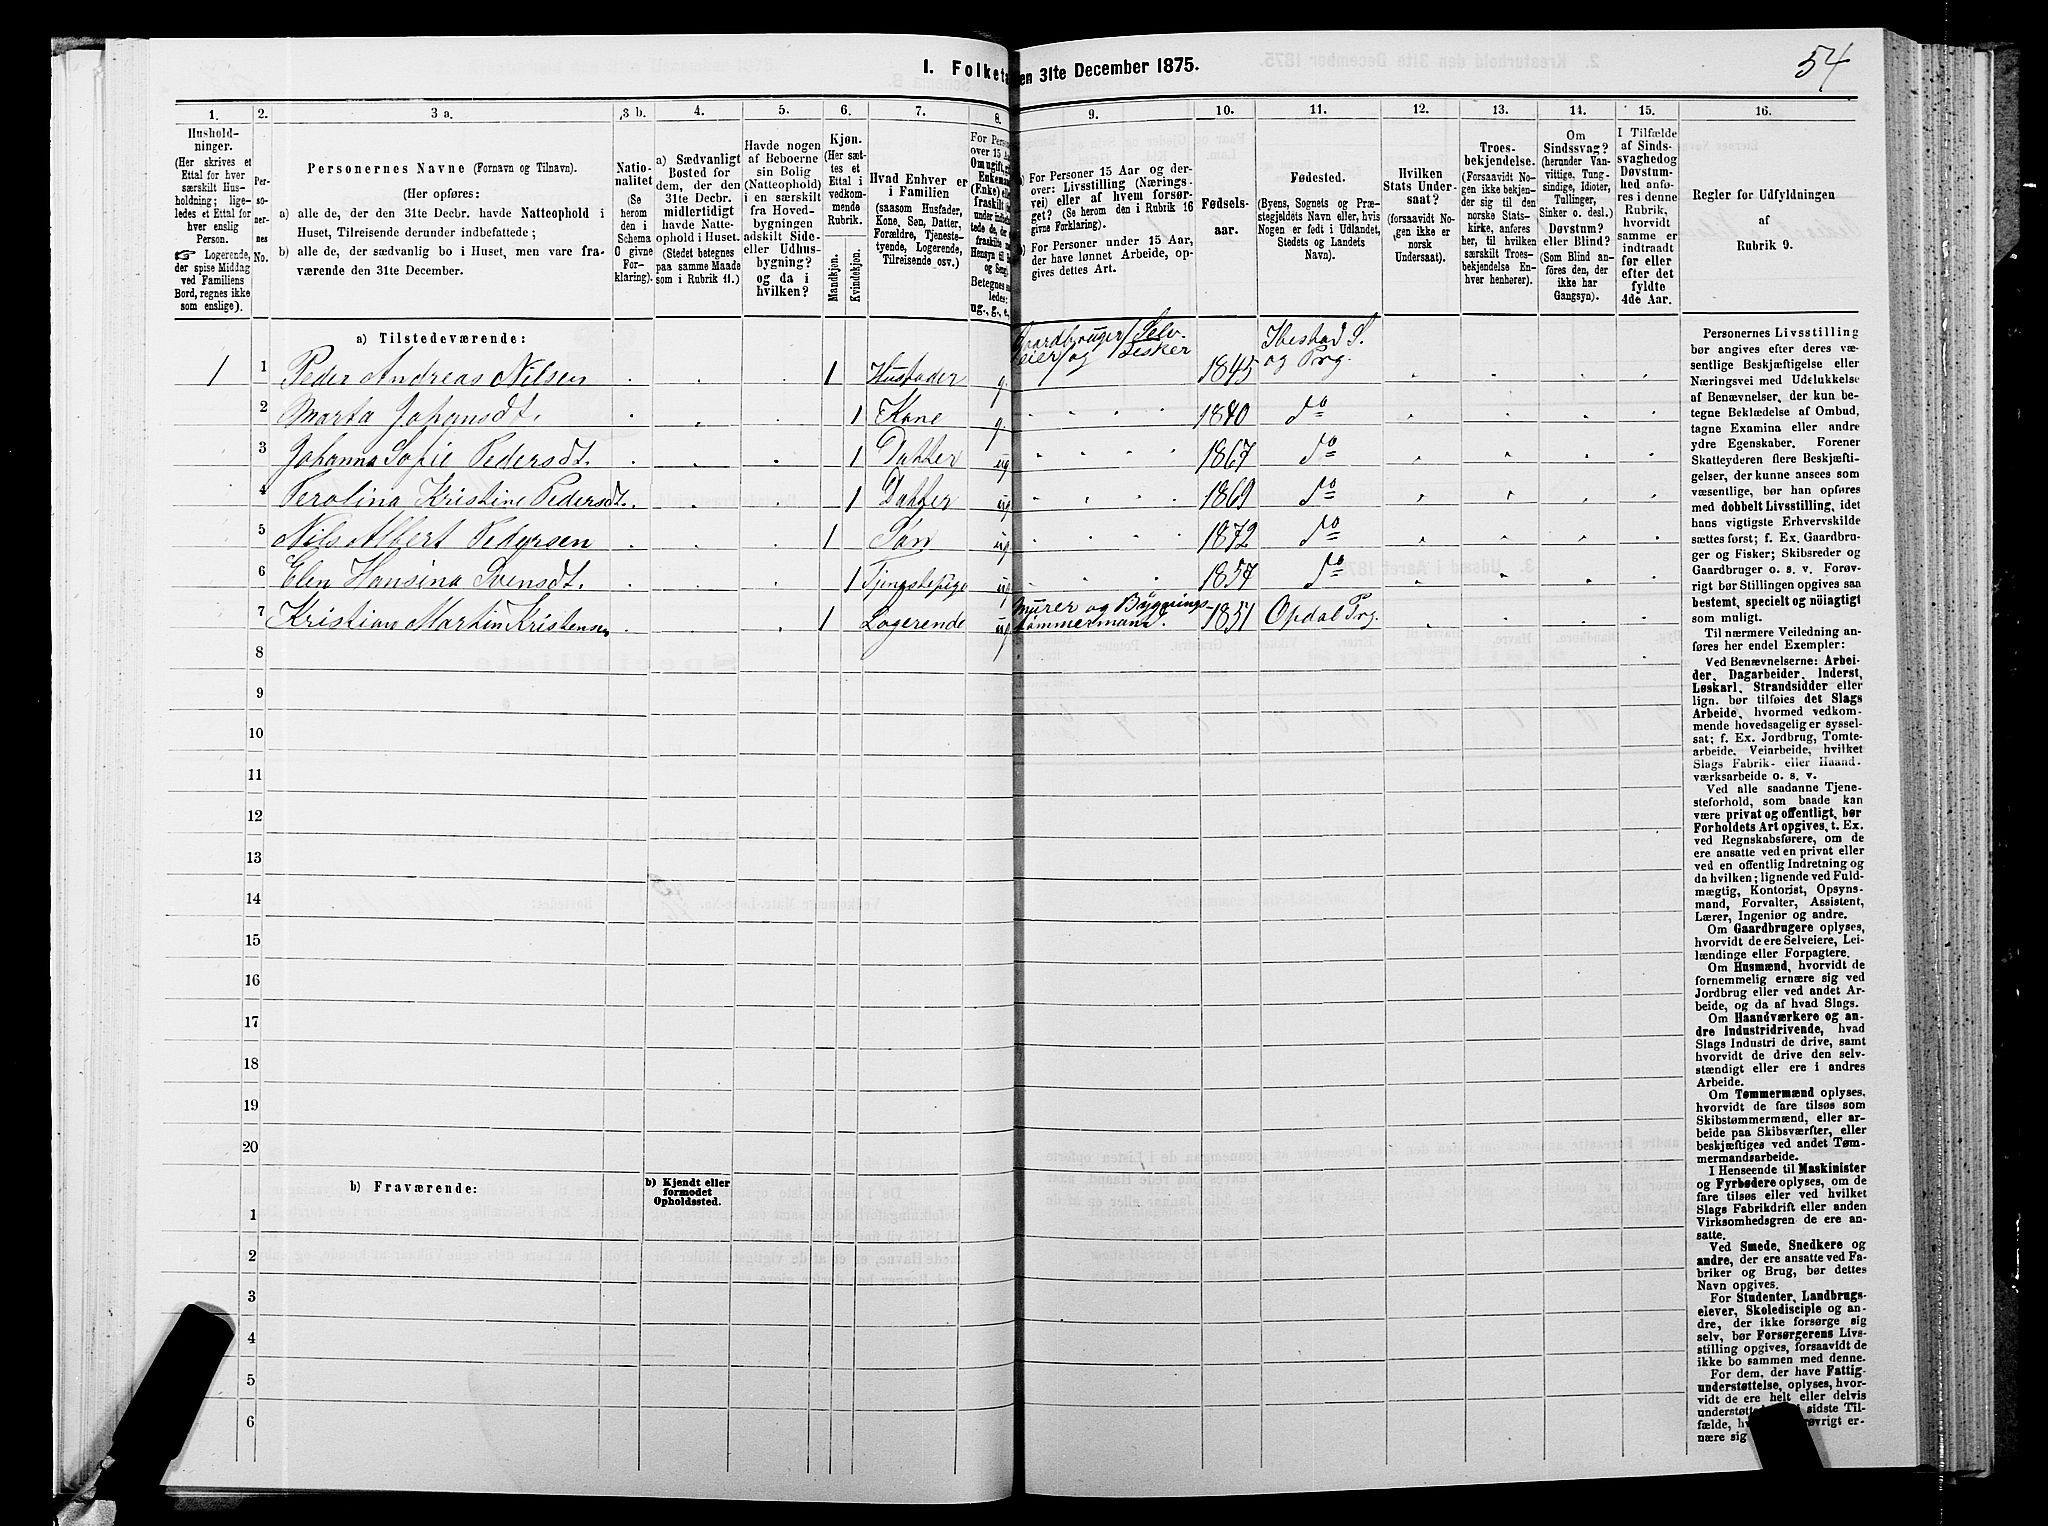 54
I. Folketæ
en 31te December 1875.
1.
2.
3 a.
3 b.
4.
5.
6.
7.
8.
9.
10.
11.
12.
13.
14.
15.
16.
Hushold-
ninger.
(Her skrives et
Ettal for hver
særskilt Hus-
holdning; lige-
ledes et Ettal for
hver enslig
Person.
☞ Logerende,
der spise Middag
ved Familiens
Bord, regnes ikke
som enslige).
Per-
so-
ner-
nes
No.
Personernes Navne (Fornavn og Tilnavn).
(Her opføres:
a) alle de, der den 31te Decbr. havde Natteophold i
Huset, Tilreisende derunder indbefattede;
b) alle de, der sædvanlig bo i Huset, men vare fra-
værende den 31te December.
Natio-
nalitet
(Se
herom
den i
Schema
O givne
For-
klaring).
a) Sædvanligt
Bosted for
dem, der den
31te Decbr.
midlertidigt
havde Natte-
ophold i Huset.
(Stedet betegnes
paa samme Maade
som i Rubrik 11.)
Havde nogen
af Beboerne
sin Bolig
(Natteophold)
i en særskilt
fra Hoved-
bygningen
adskilt Side-
eller Udhus-
bygning?
og da i
hvilken?
Kjøn.
(Her sæt-
tes et
Ettal i
vedkom-
mende
Rubrik.
Mandkjøn.
Kvindekjøn.
Hvad Enhver er
i Familien
(saasom Husfader,
Kone, Søn, Datter,
Forældre, Tjeneste-
tyende, Logerende,
Tilreisende osv.)
For Perso
over 15 Aa
Om ugift,
Enkeman
(Enke) elle
fraskilt
Betegnes
ledes:
ug., g., e.,
a) For Personer 15 Aar og der-
over: Livsstilling (Nærings-
vei) eller af hvem forsør-
get? (Se herom den i Rubrik 16
givne Forklaring).
b) For Personer under 15 Aar,
der have lønnet Arbeide, op-
gives dettes Art.
Fødsels-
aar.
Fødested.
(Byens, Sognets og Præ-
stegjeldets Navn eller, hvis
Nogen er født i Udlandet,
Stedets og Landets
Navn).
Hvilken
Stats Under-
saat?
(forsaavidt No-
gen ikke er
norsk
Undersaat).
Troes-
bekjendelse.
(Forsaavidt No-
gen ikke bekjen-
der sig til den
norske Stats-
kirke, anføres
her, til hvilken
særskilt Troes-
bekjendelse En-
hver henhører).
Om
Sindssvag?
(herunder Van-
vittige, Tung-
sindige, Idioter,
Tullinger,
Sinker o. desl.)
Døvstum?
eller Blind?
(Som Blind an-
føres den, der
ikke har
Gangsyn).
I Tilfælde
af Sinds-
svaghed og
Døvstum-
hed anfø-
res i denne
Rubrik,
hvorvidt
samme er
indtraadt
før eller
efter det
fyldte
4de Aar.
Regler for Udfyldningen
af
Rubrik 9.
a) Tilstedeværende:
1 1 Peder Andreas Nilsen 1 Husfader g. Gaardbruger/Selv-
eier/og Fisker 1845 Ibestad S.
og Prg.
2 Marta Johansdt. 1 Kone g. 1840 do
3 Johanna Sofie Pedersdt. 1 Datter ug 1867 do
4 Perolina Kristine Pedersdt. 1 Datter ug 1869 do
5 Nils Albert Pedersen 1 Søn ug 1872 do
6 Elen Hansina Svensdt. 1 Tjenstepige ug 1857 do
7 Kristian Martin Kristensen 1 Logerende ug Murer og Bygnings-
tømmermand. 1851 Opdal Prg.
8
9
10
11
12
13
14
15
16
17
18
19
20
b) Fraværende:
b) Kjendt eller
formodet
Opholdssted.
1
2
3
4
5
6
Personernes Livsstilling
bør angives efter deres væ-
sentlige Beskjæftigelse eller
Næringsvei med Udelukkelse
af Benævnelser, der kun be-
tegne Beklædelse af Ombud,
tagne Examina eller andre
ydre Egenskaber. Forener
Skatteyderen flere Beskjæfti-
gelser, der kunne ansees som
væsentlige, bør han opføres
med dobbelt Livsstilling, idet
hans vigtigste Erhvervskilde
sættes først; f. Ex. Gaardbru-
ger og Fisker; Skibsreder og
Gaardbruger o. s. v. Forøv-
rigt bør Stillingen opgives saa
bestemt, specielt og nøiagtigt
som muligt.
Til nærmere Veiledning an-
føres her endel Exempler:
Ved Benævnelserne: Arbei-
der, Dagarbeider, Inderst,
Løskarl, Strandsidder eller
lign. bør tilføies det Slags
Arbeide, hvormed vedkom-
mende hovedsagelig er syssel-
sat; f. Ex. Jordbrug, Tomte-
arbeide, Veiarbeide, hvilket
Slags Fabrik- eller Haand-
værksarbeide o. s. v.
Ved alle saadanne Tjene-
steforhold, som baade kan
være privat og offentligt, bør
Forholdets Art opgives, t. Ex.
ved Regnskabsførere, om de
ere ansatte ved en privat eller
ved en offentlig Indretning og
da hvilken; lignende ved Fuld-
mægtig, Kontorist, Opsyns-
mand, Forvalter, Assistent,
Lærer, Ingeniør og andre.
Om Gaardbrugere oplyses,
hvorvidt de ere Selveiere, Lei-
lændinge eller Forpagtere.
Om Husmænd, hvorvidt de
fornemmelig ernære sig ved
Jordbrug eller ved andet Ar-
beide, og da af hvad Slags.
Om Haandværkere og an-
dre Industridrivende, hvad
Slags Industri de drive, samt
hvorvidt de drive den selv-
stændigt eller ere i andres
Arbeide.
Om Tømmermænd oplyses,
hvorvidt de fare tilsøs som
Skibstømmermænd, eller ar-
beide paa Skibsværfter, eller
beskjæftiges ved andet Tøm-
mermandsarbeide.
I Henseende til Maskinister
og Fyrbødere oplyses, om de
fare tilsøs eller ved hvilket
Slags Fabrikdrift eller anden
Virksomhedsgren de ere an-
satte.
Ved Smede, Snedkere og
andre, der ere ansatte ved Fa-
briker og Brug, bør dettes
Navn opgives.
For Studenter, Landbrugs-
elever, Skoledisciple og an-
dre, der ikke forsørge sig
selv, bør Forsørgerens Livs-
stilling opgives, forsaavidt de
ikke bo sammen med denne.
For dem, der have Fattig-
understøttelse, oplyses, hvor-
vidt de ere helt eller delvis
sidste Til-
fælde, øvrigt er-
nære sig